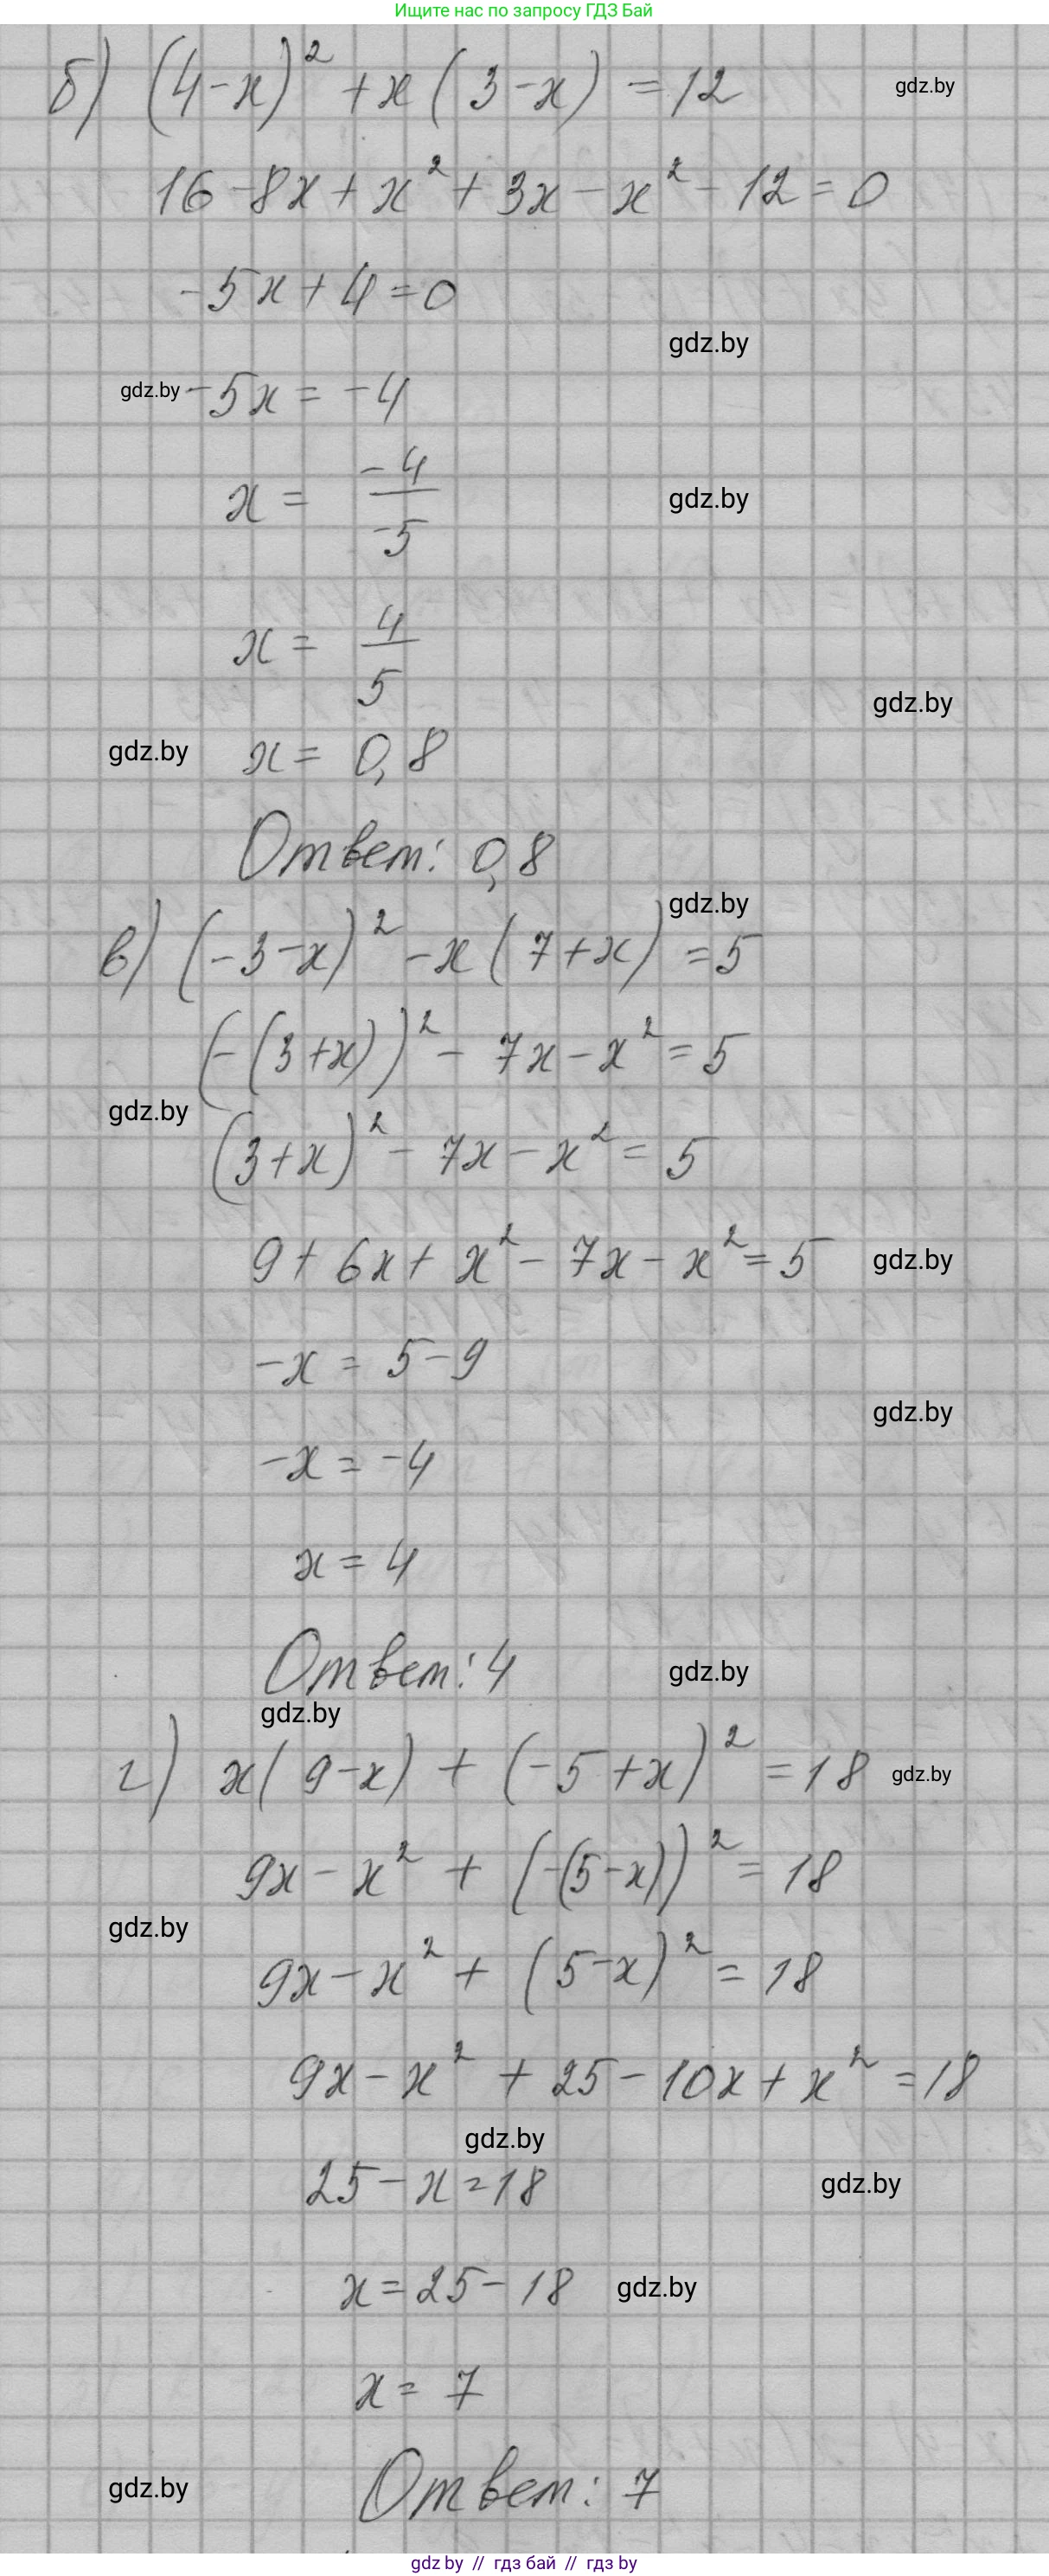 Ищите нас по запросу ГДЗ Бай
б) (4-x)² + x(3-x) = 12 gdz.by
16 - 8x + x² + 3x - x² - 12 = 0
-5x + 4 = 0
gdz.by
gdz.by -5x = -4
x = -4/-5 gdz.by
x = 4/5
gdz.by
gdz.by x = 0,8
Ответ: 0,8
gdz.by
в) (-3-x)² - x(7+x) = 5
(-(3+x))² - 7x - x² = 5
gdz.by
(3+x)² - 7x - x² = 5
9 + 6x + x² - 7x - x² = 5 gdz.by
-x = 5 - 9
gdz.by
-x = -4
x = 4
Ответ: 4 gdz.by
gdz.by
г) x(9-x) + (-5+x)² = 18 gdz.by
9x - x² + (-(5-x))² = 18
gdz.by
9x - x² + (5-x)² = 18
9x - x² + 25 - 10x + x² = 18
gdz.by
25 - x = 18 gdz.by
x = 25 - 18 gdz.by
x = 7
gdz.by Ответ: 7
gdz by // гдз бай // гдз by